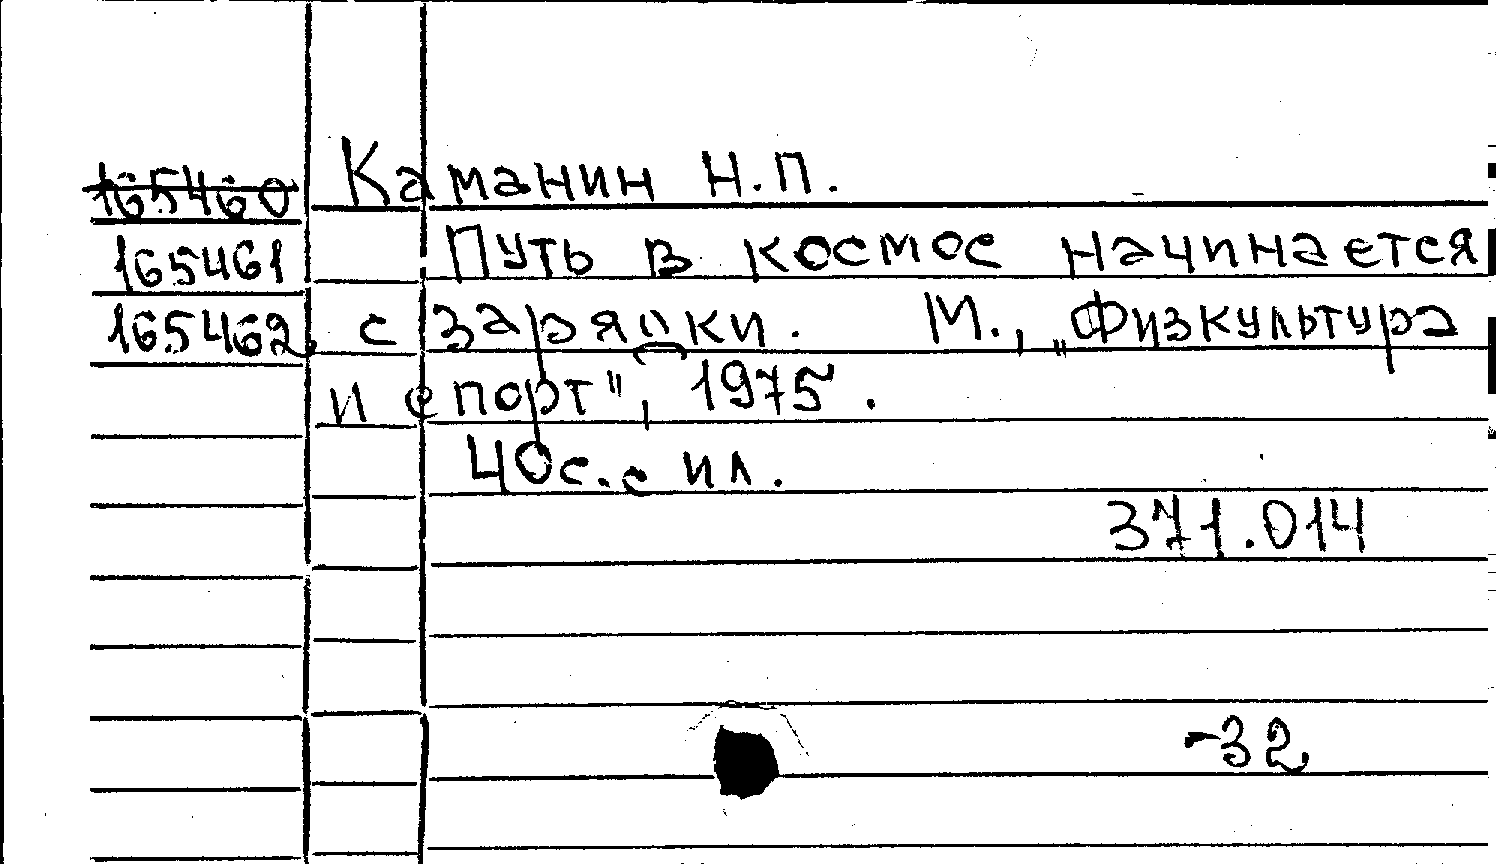 165460 Каманин Н.П.
165461 Путь в космос начинается
165462 с зарядки. М., „Физкультура
и спорт", 1975.
40с. с ил.
371.014
-32